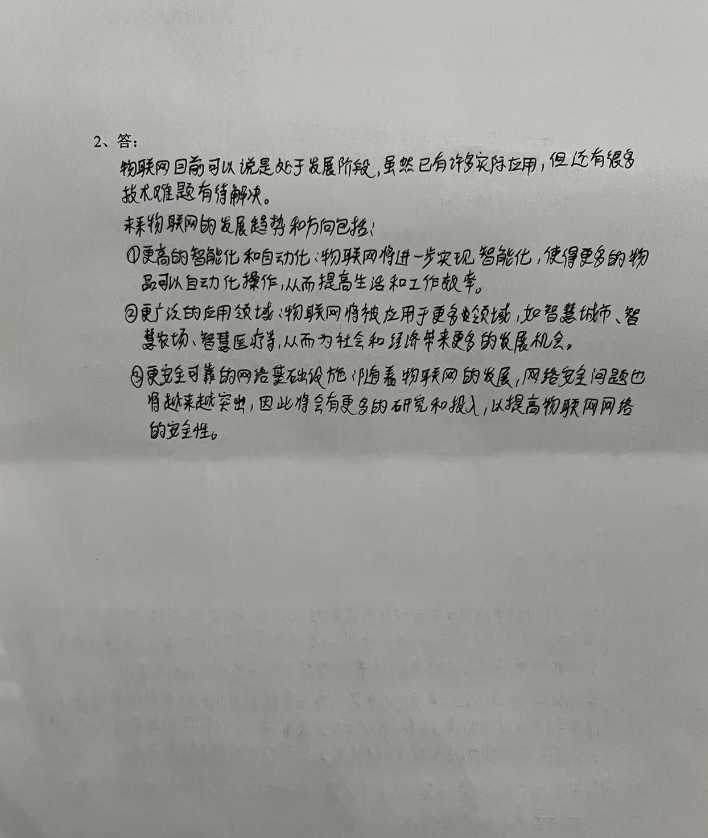 2、答：
物联网目前可以说是处于发展阶段，虽然已有许多实际应用，但还有很多
技术难题有待解决。
未来物联网的发展趋势和方向包括：
①更高的智能化和自动化：物联网将进一步实现智能化，使得更多的物
品可以自动化操作，从而提高生活和工作效率。
②更广泛的应用领域：物联网将被应用于更多领域，如智慧城市、智
慧农场、智慧医疗等，从而为社会和经济带来更多的发展机会。
③更安全可靠的网络基础设施：随着物联网的发展，网络安全问题也
将越来越突出，因此将会有更多的研究和投入，以提高物联网网络
的安全性。